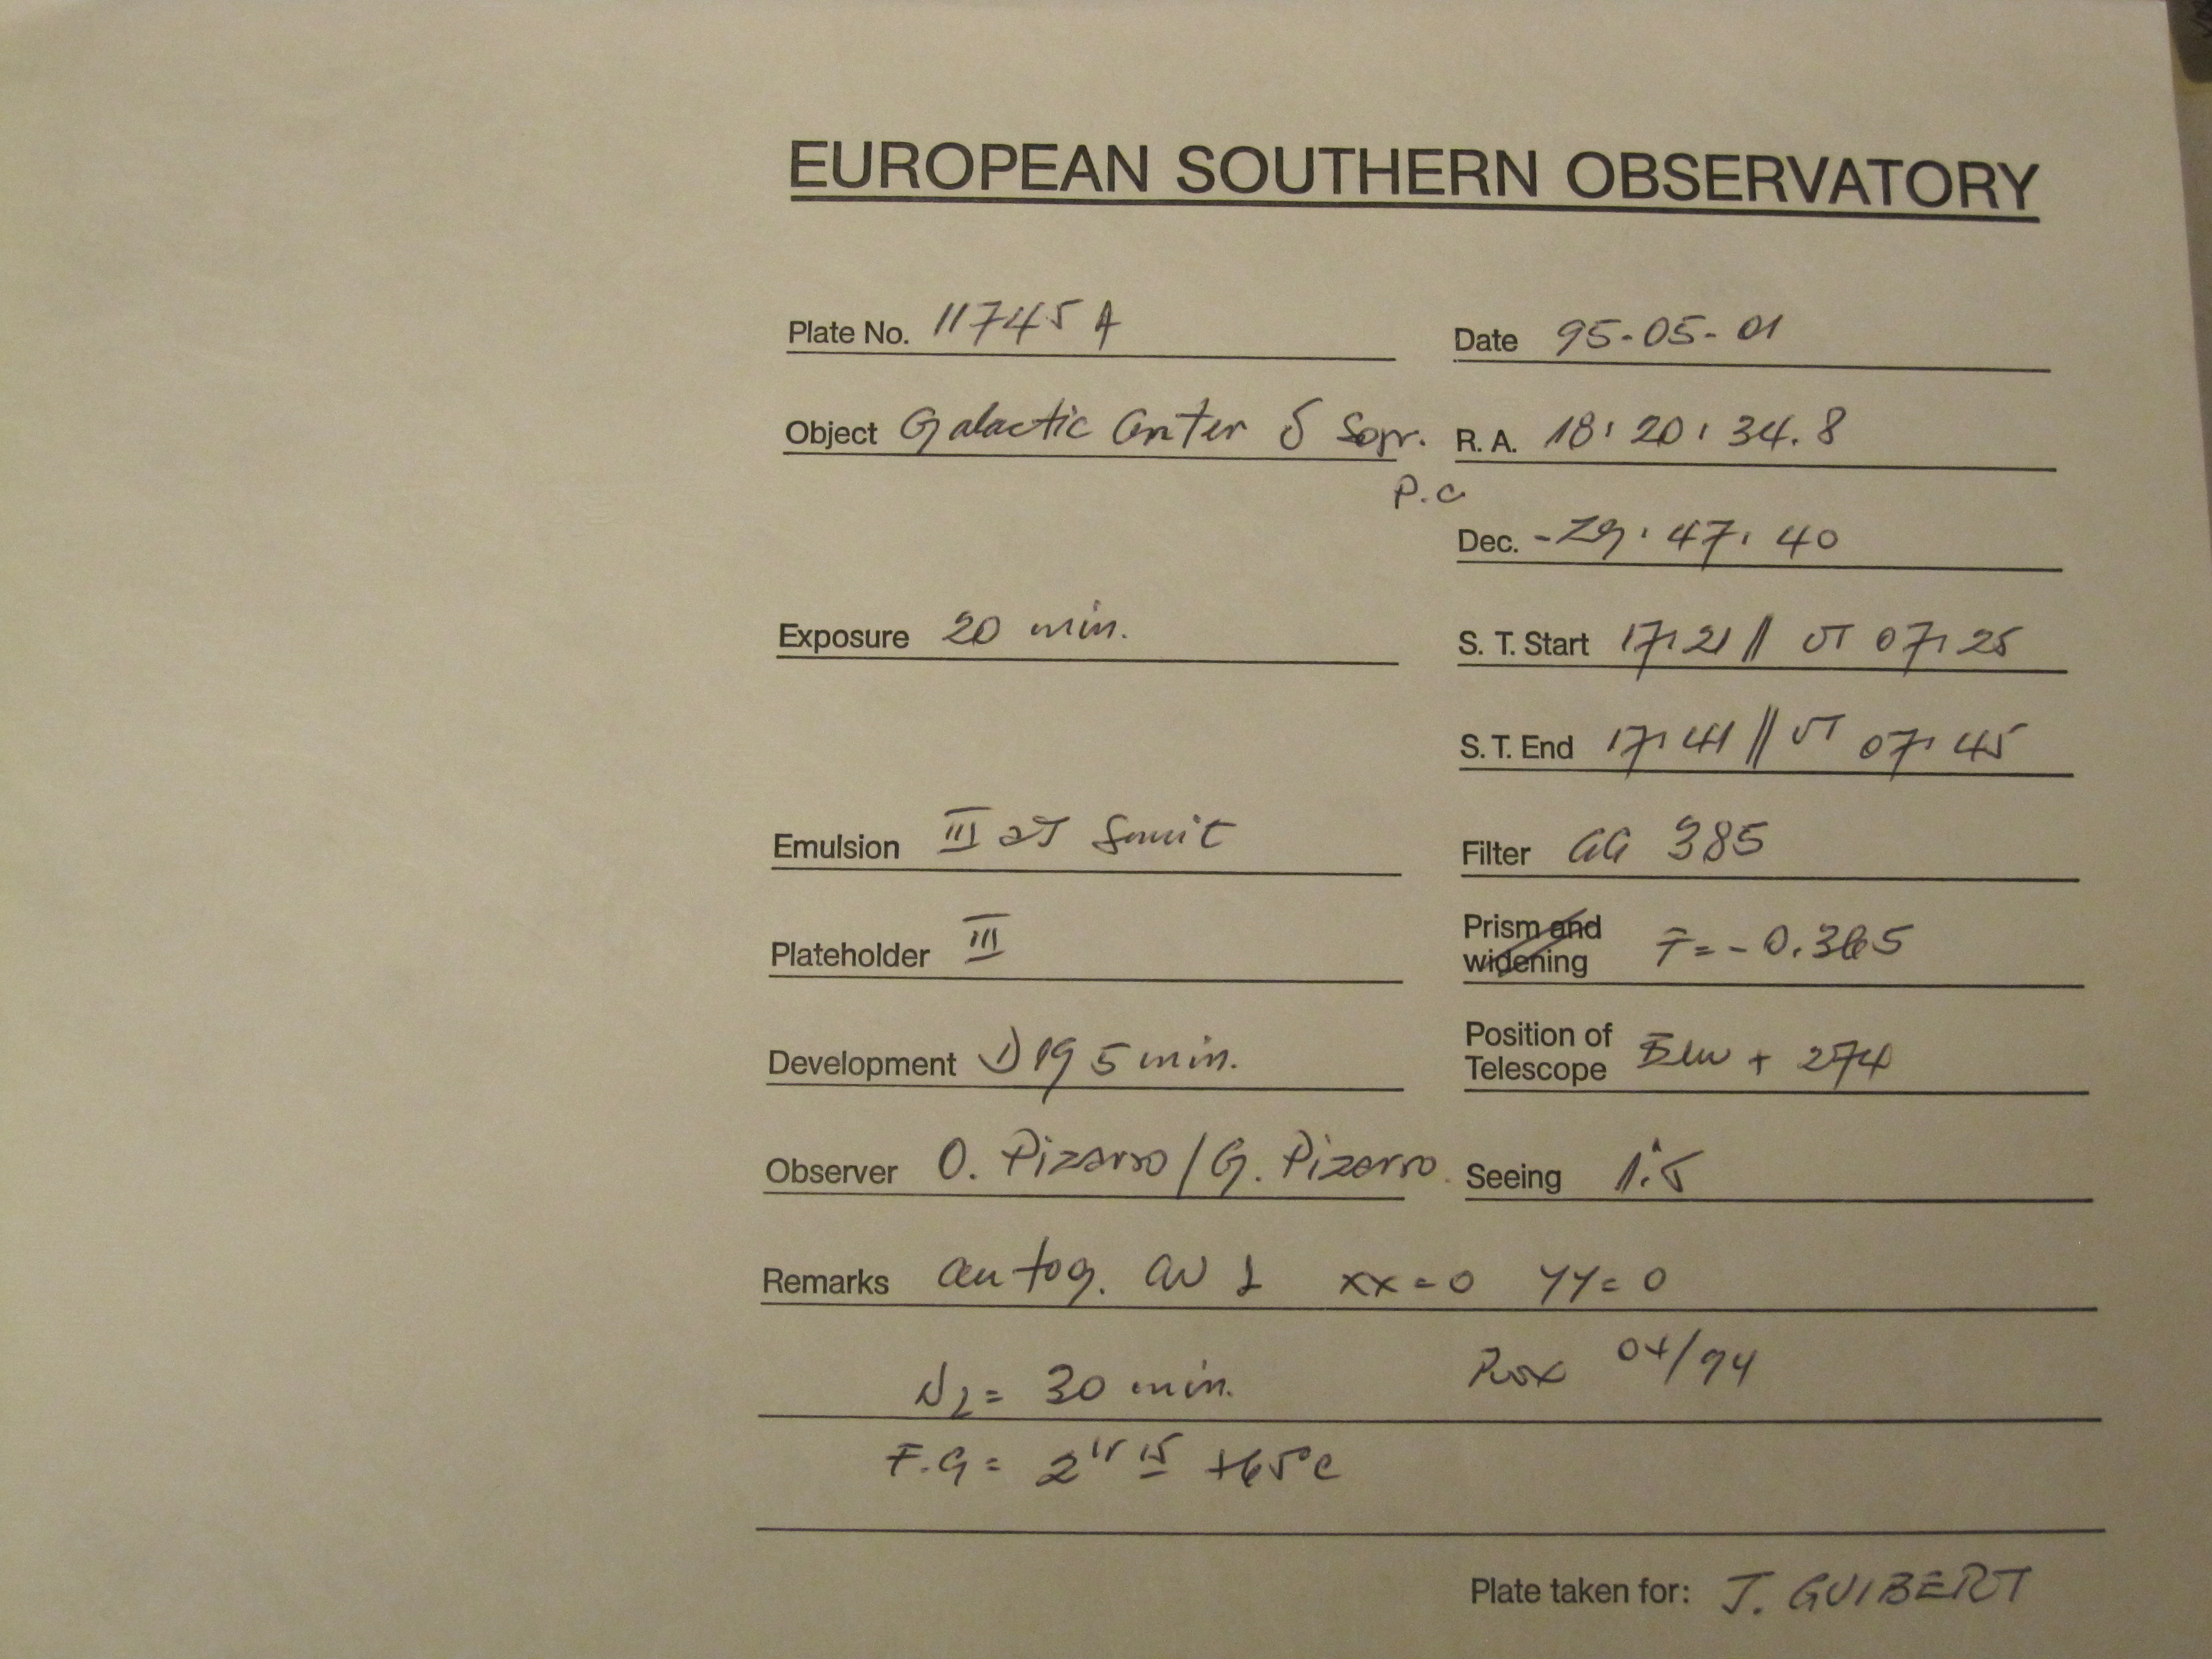 EUROPEAN SOUTHERN OBSERVATORY
Plate No. 11745 A Date 95-05-01
Object Galactic Center δ Sopr. R. A. 18:20:34.8
P.c
Dec. -29:47:40
Exposure 20 min. S. T. Start 17:21 // UT 07:25
S. T. End 17:41 // UT 07:45
Emulsion III aJ Filter GG 385
Plateholder III Prism and widening F=-0.365
Development D19 5 min. Position of Telescope + 274
Observer O. Pizarro / G. Pizarro. Seeing 1".5
Remarks autog. xx=0 yy=0
N2= 30 min. 04/94
F.G= +65°C
Plate taken for: J. GUIBERT